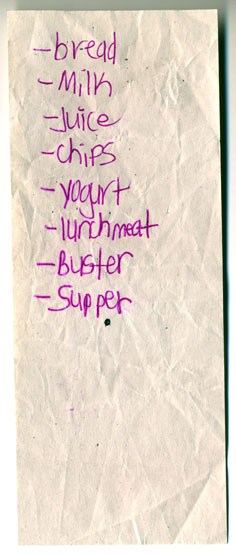 -bread
-Milk
-Juice
-chips
-yogurt
-lunchmeat
-Buster
-Supper